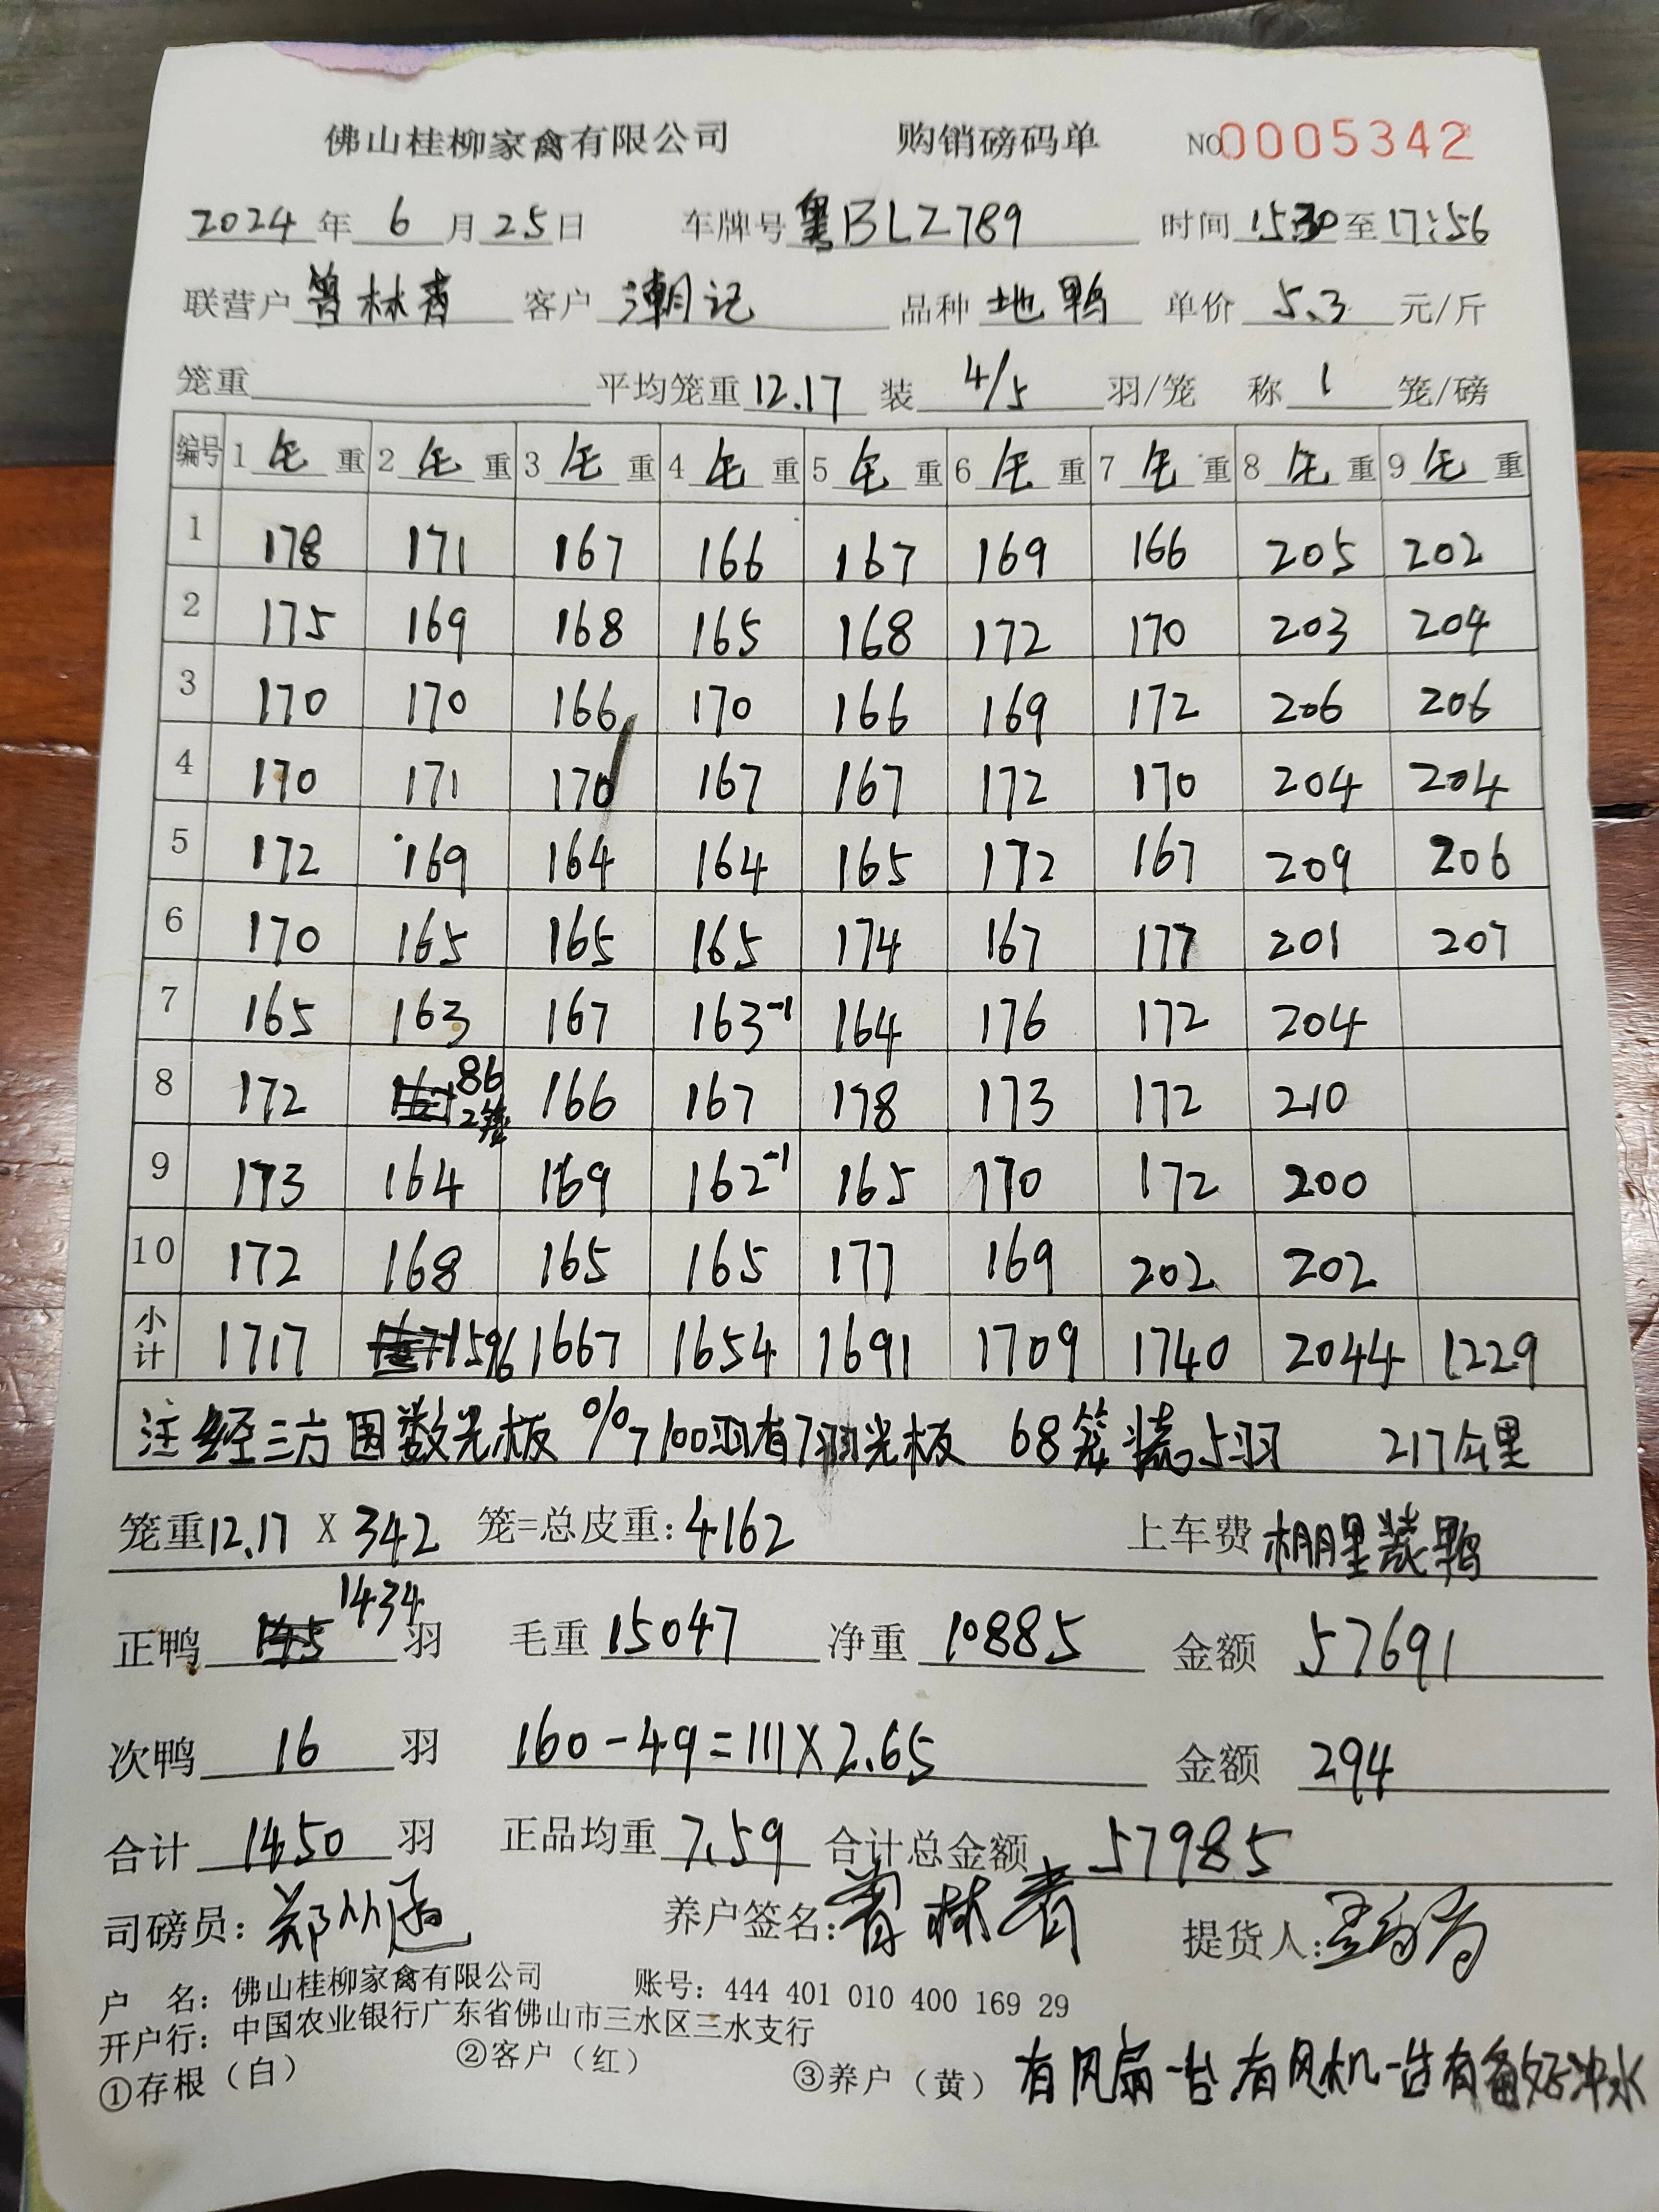 佛山桂柳家禽有限公司 购销磅码单 NO0005342
2024年6月25日 车牌号粤BLZ789 时间1530至17:56
联营户曾林青 客户潮记 品种地鸭 单价5.3元/斤
笼重 平均笼重12.17 装4/5羽/笼 称1笼/磅
编号 1毛重 2毛重 3毛重 4毛重 5毛重 6毛重 7毛重 8毛重 9毛重
1 178 171 167 166 167 169 166 205 202
2 175 169 168 165 168 172 170 203 204
3 170 170 166 170 166 169 172 206 206
4 170 171 170 167 167 172 170 204 204
5 172 169 164 164 165 172 167 209 206
6 170 165 165 165 174 167 177 201 207
7 165 163 167 163-1 164 176 172 204
8 172 86 2笼 166 167 178 173 172 210
9 173 164 169 162-1 165 170 172 200
10 172 168 165 165 177 169 202 202
小计 1717 1596 1667 1654 1691 1709 1740 2044 1229
注 经三方因数光板%7 100羽有7羽光板 68笼装5羽 217公里
笼重12.17 X 342 笼=总皮重:4162 上车费 棚里装鸭
正鸭 1434 羽 毛重 15047 净重 10885 金额 57691
次鸭 16 羽 160-49=111X2.65 金额 294
合计 1450 羽 正品均重 7.59 合计总金额 57985
司磅员: 养户签名:曾林青 提货人:
户 名:佛山桂柳家禽有限公司 账号:444 401 010 400 169 29
开户行:中国农业银行广东省佛山市三水区三水支行
①存根(白) ②客户(红) ③养户(黄) 有风扇一台,有风机一台有备好冲水